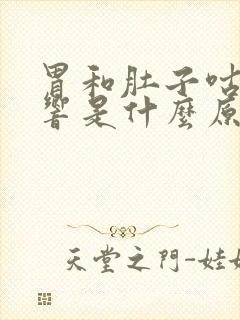 胃和肚子咕
響是什麼原
天堂之門-娃娃